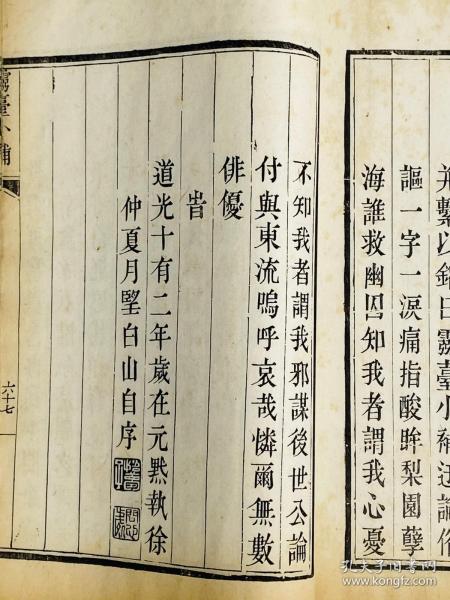 并繫以銘曰靈臺小補迂論俗
謳一字一淚痛指酸眸梨園孽
海誰救幽囚知我者謂我心憂
不知我者謂我邪謀後世公論
付與東流嗚呼哀哉憐爾無數
俳優
旹
道光十有二年歲在元黓執徐
仲夏月望白山自序
靈臺小補
六十七
孔夫子旧书网
www.kongfz.com